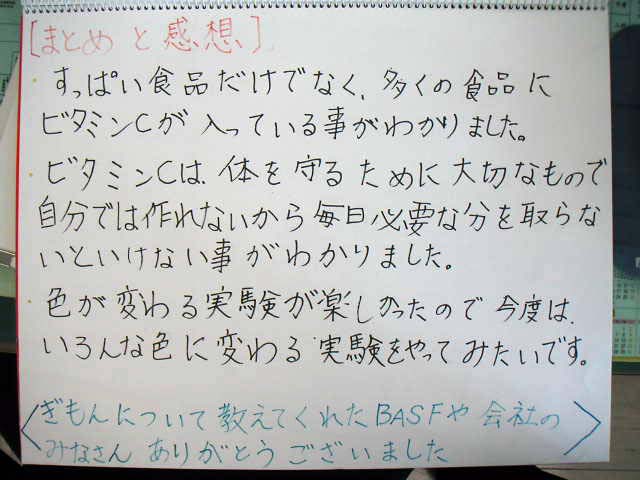 [まとめと感想]
・すっぱい食品だけでなく、多くの食品に
ビタミンCが入っている事がわかりました。
・ビタミンCは、体を守るために大切なもので
自分では作れないから毎日必要な分を取らな
いといけない事がわかりました。
・色が変わる実験が楽しかったので今度は、
いろんな色に変わる実験をやってみたいです。
〈ぎもんについて教えてくれたBASFや会社の
みなさんありがとうございました〉